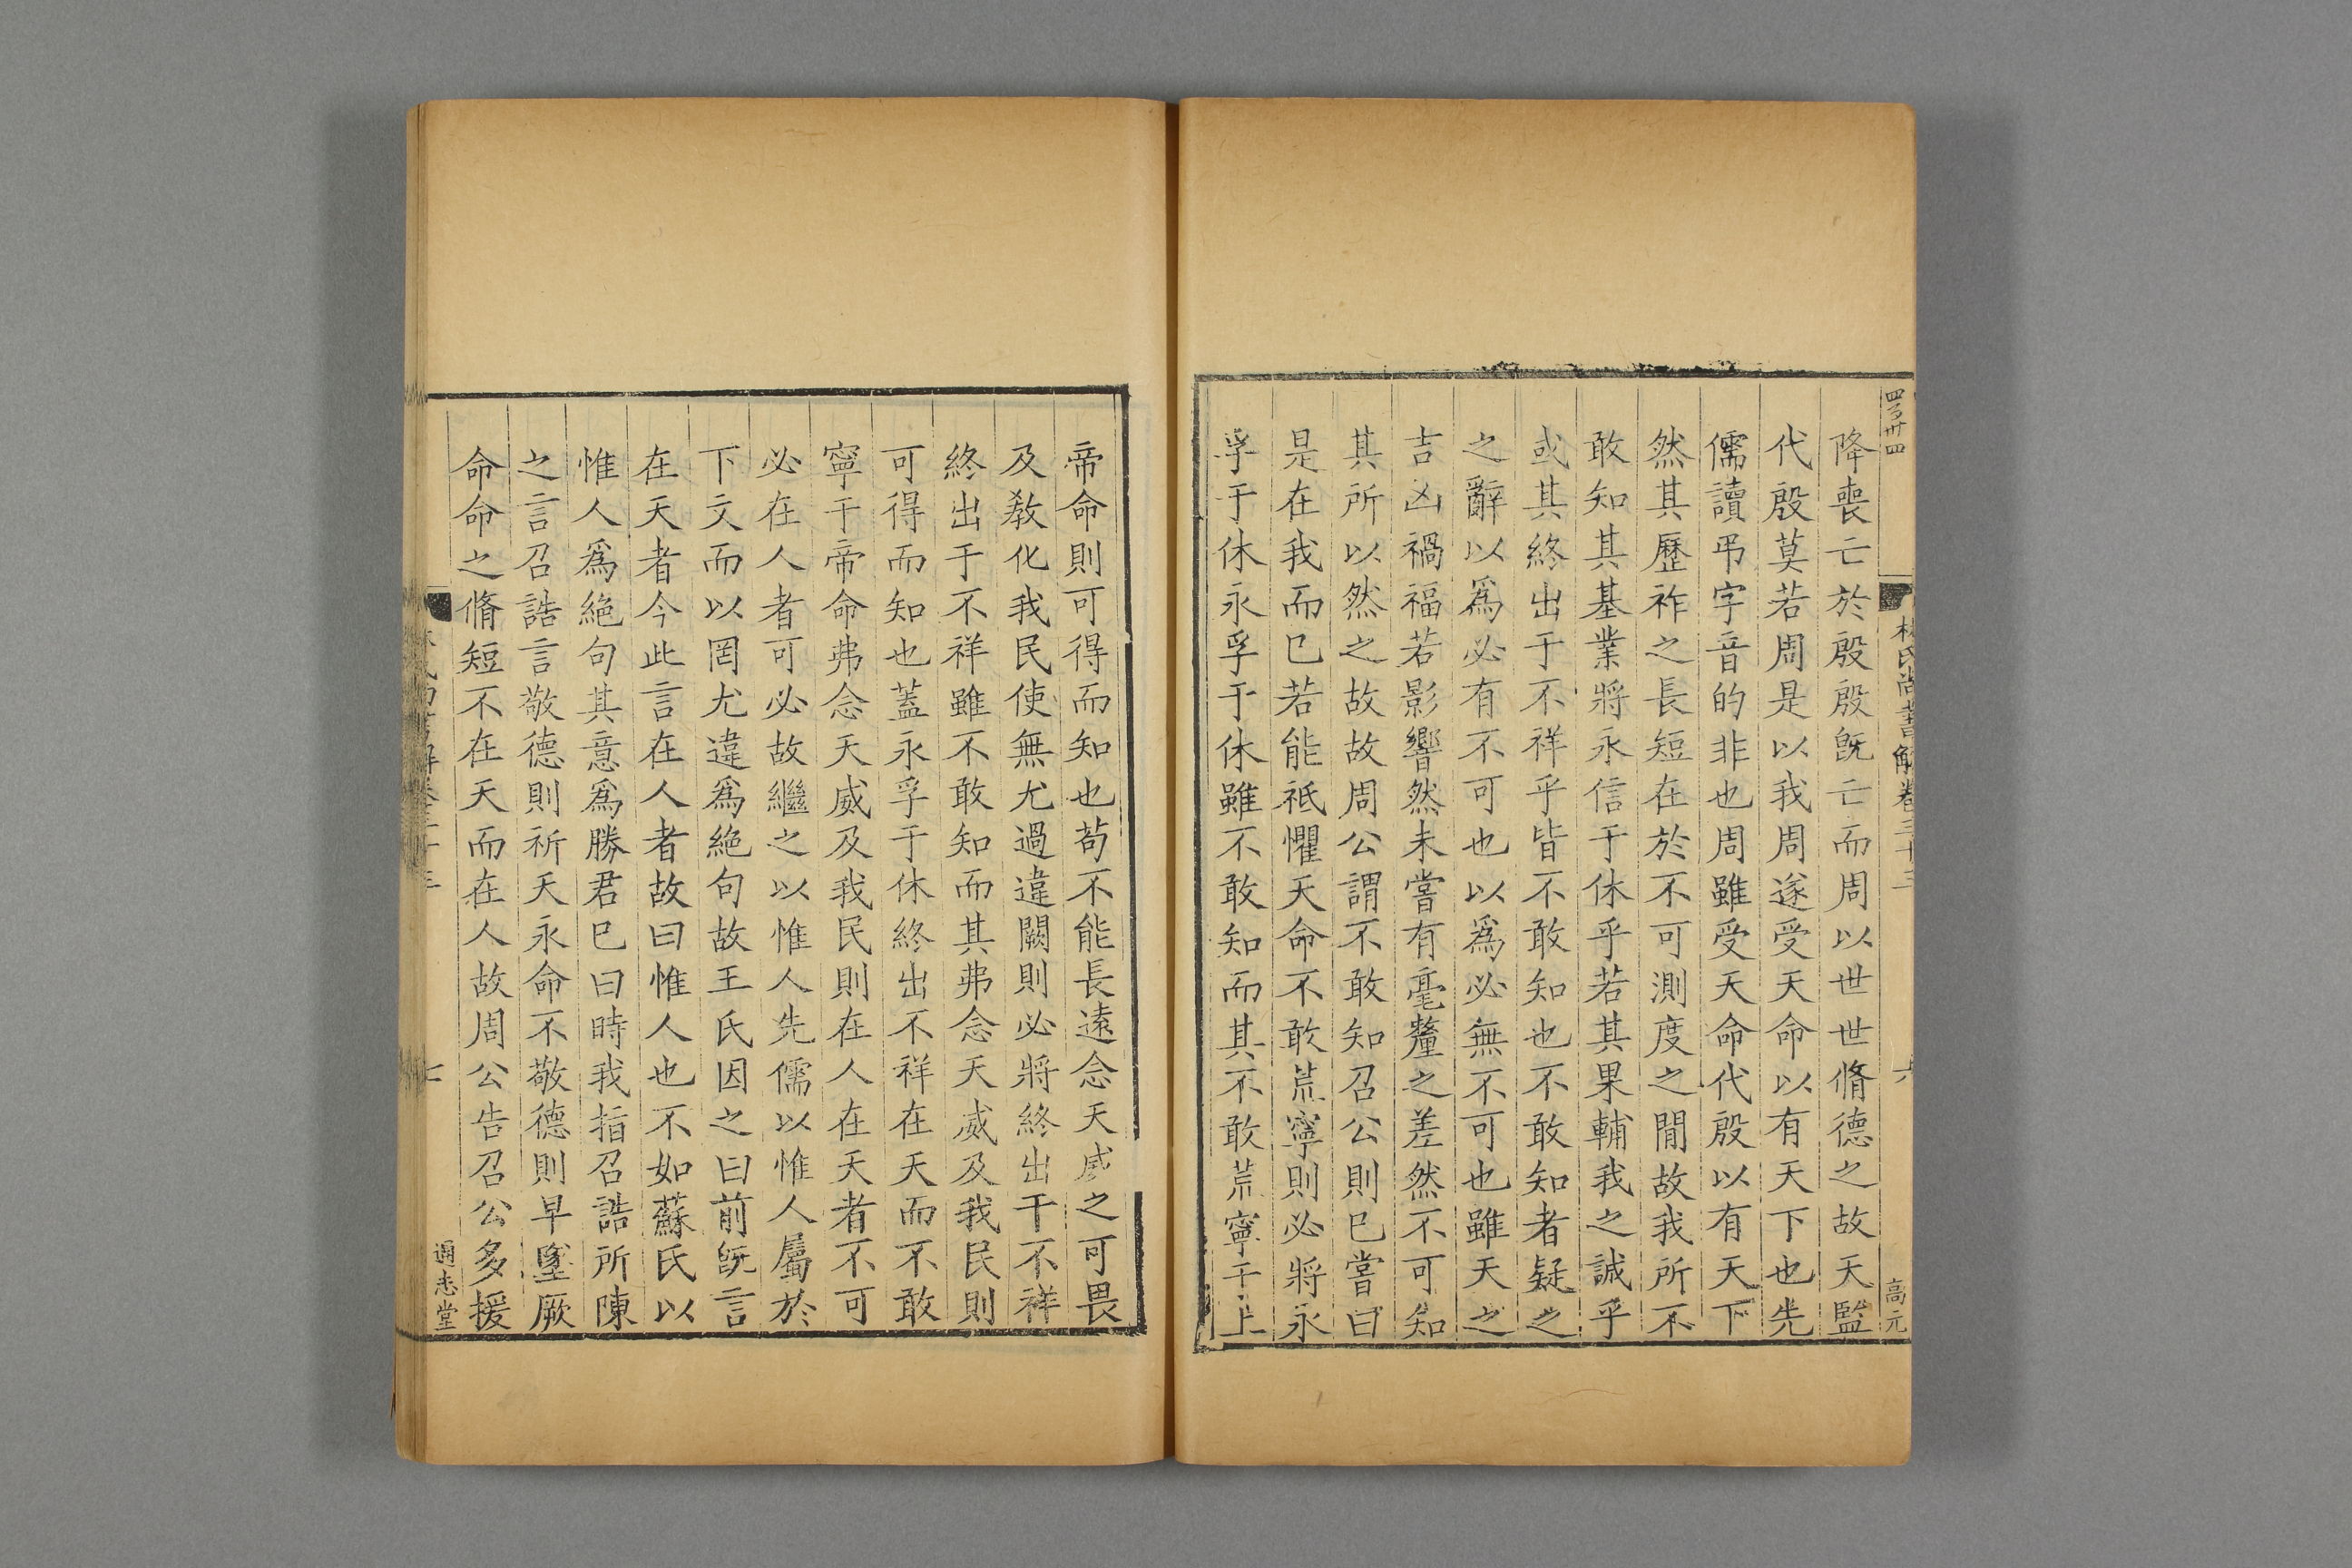 四百卅四
林氏尚書解卷三十三
六
高元
降喪亡於殷殷旣亡而周以世世脩德之故天監
代殷莫若周是以我周遂受天命以有天下也先
儒讀弔字音的非也周雖受天命代殷以有天下
然其歷祚之長短在於不可測度之閒故我所不
敢知其基業將永信于休乎若其果輔我之誠乎
或其終出于不祥乎皆不敢知也不敢知者疑之
之辭以爲必有不可也以爲必無不可也雖天之
吉凶禍福若影響然未嘗有毫釐之差然不可知
其所以然之故故周公謂不敢知召公則已嘗曰
是在我而已若能祗懼天命不敢荒寧則必將永
孚于休永孚于休雖不敢知而其不敢荒寧于上
帝命則可得而知也茍不能長遠念天威之可畏
及敎化我民使無尤過違闕則必將終出于不祥
終出于不祥雖不敢知而其弗念天威及我民則
可得而知也蓋永孚于休終出不祥在天而不敢
寧于帝命弗念天威及我民則在人在天者不可
必在人者可必故繼之以惟人先儒以惟人屬於
下文而以罔尤違爲絶句故王氏因之曰前旣言
在天者今此言在人者故曰惟人也不如蘇氏以
惟人爲絶句其意爲勝君已曰時我指召誥所陳
之言召誥言敬德則祈天永命不敬德則早墜厥
命命之脩短不在天而在人故周公告召公多援
七
通志堂